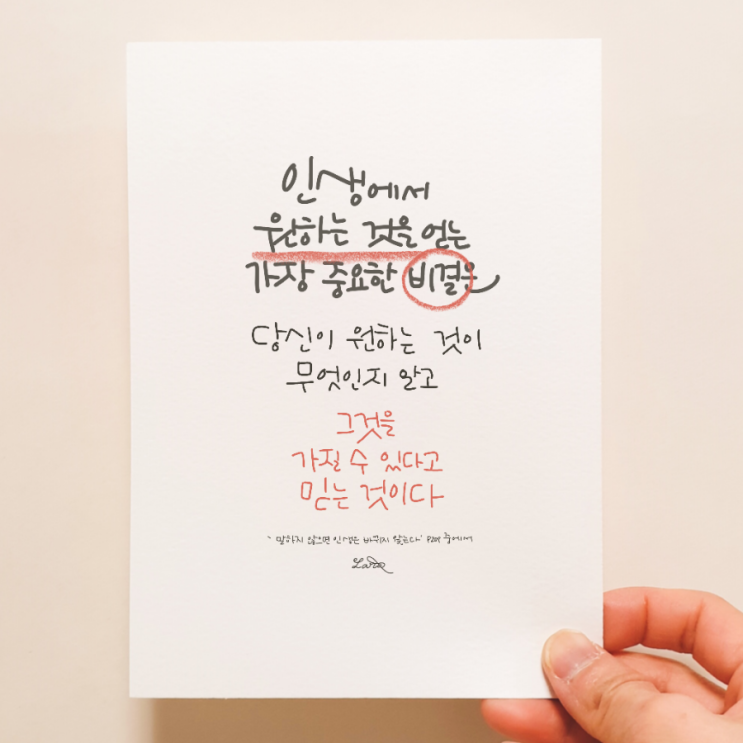 인생에서
원하는 것을 얻는
가장 중요한 비결은
당신이 원하는 것이
무엇인지 알고
그것을
가질 수 있다고
믿는 것이다
'말하지 않으면 인생은 바뀌지 않는다' 중에서